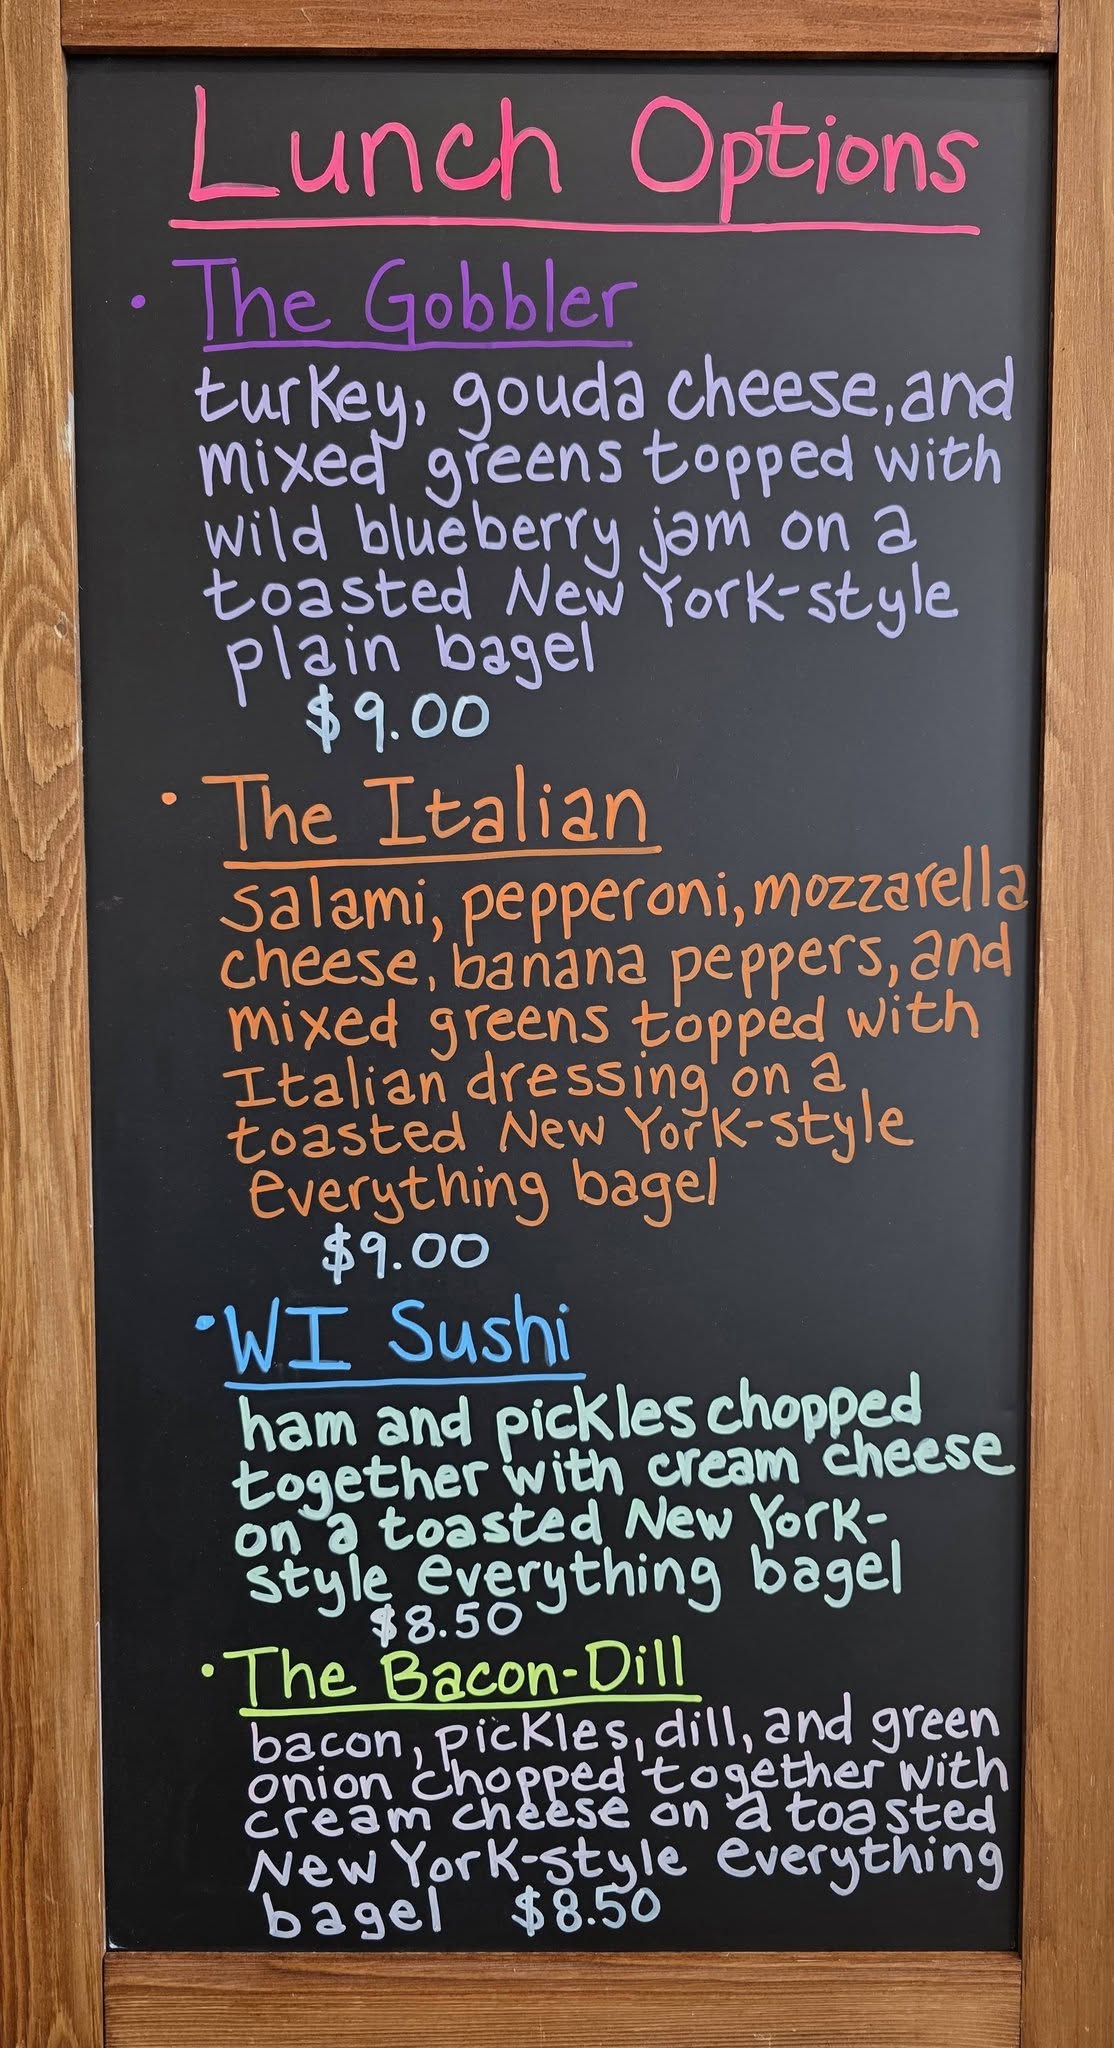 Lunch Options
• The Gobbler
turkey, gouda cheese, and
mixed greens topped with
wild blueberry jam on a
toasted New York-style
plain bagel
$9.00
• The Italian
salami, pepperoni, mozzarella
cheese, banana peppers, and
mixed greens topped with
Italian dressing on a
toasted New York-style
everything bagel
$9.00
• WI Sushi
ham and pickles chopped
together with cream cheese
on a toasted New York-
style everything bagel
$8.50
• The Bacon-Dill
bacon, pickles, dill, and green
onion chopped together with
cream cheese on a toasted
New York-style everything
bagel $8.50